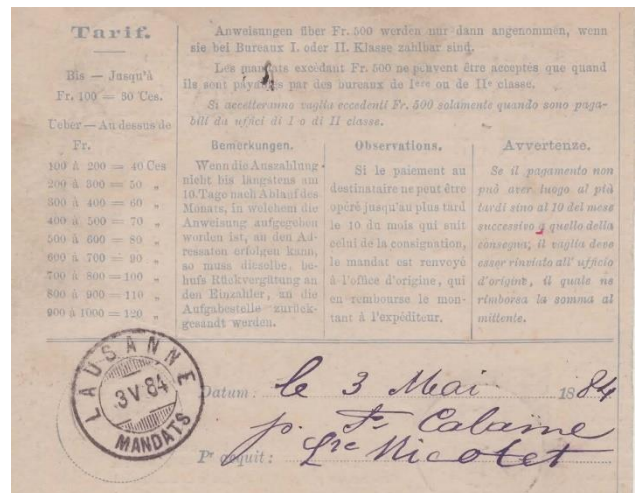 Tarif.
Bis — Jusqu'à
Fr. 100 = 30 Ces.
Ueber — Au dessus de
Fr.
100 à 200 = 40 Ces
200 à 300 = 50 „
300 à 400 = 60 „
400 à 500 = 70 „
500 à 600 = 80 „
600 à 700 = 90 „
700 à 800 = 100 „
800 à 900 = 110 „
900 à 1000 = 120 „
Anweisungen über Fr. 500 werden nur dann angenommen, wenn
sie bei Bureaux I. oder II. Klasse zahlbar sind.
Les mandats excédant Fr. 500 ne peuvent être acceptés que quand
ils sont payables par des bureaux de Ière ou de IIe classe.
Si accetteranno vaglia eccedenti Fr. 500 solamente quando sono paga-
bili da uffici di I o di II classe.
Bemerkungen.
Wenn die Auszahlung
nicht bis längstens am
10. Tage nach Ablauf des
Monats, in welchem die
Anweisung aufgegeben
worden ist, an den Ad-
ressaten erfolgen kann,
so muss dieselbe, be-
hufs Rückvergütung an
den Einzahler, an die
Aufgabestelle zurück-
gesandt werden.
Observations.
Si le paiement au
destinataire ne peut être
opéré jusqu'au plus tard
le 10 du mois qui suit
celui de la consignation,
le mandat est renvoyé
à l'office d'origine, qui
en rembourse le mon-
tant à l'expéditeur.
Avvertenze.
Se il pagamento non
può aver luogo al più
tardi sino al 10 del mese
successivo a quello della
consegna, il vaglia deve
esser rinviato all' ufficio
d'origine, il quale ne
rimborsa la somma al
mittente.
LAUSANNE
3 V 84
MANDATS
Datum: le 3 Mai 1884
p. Calame
Pr acquit: Nicolet